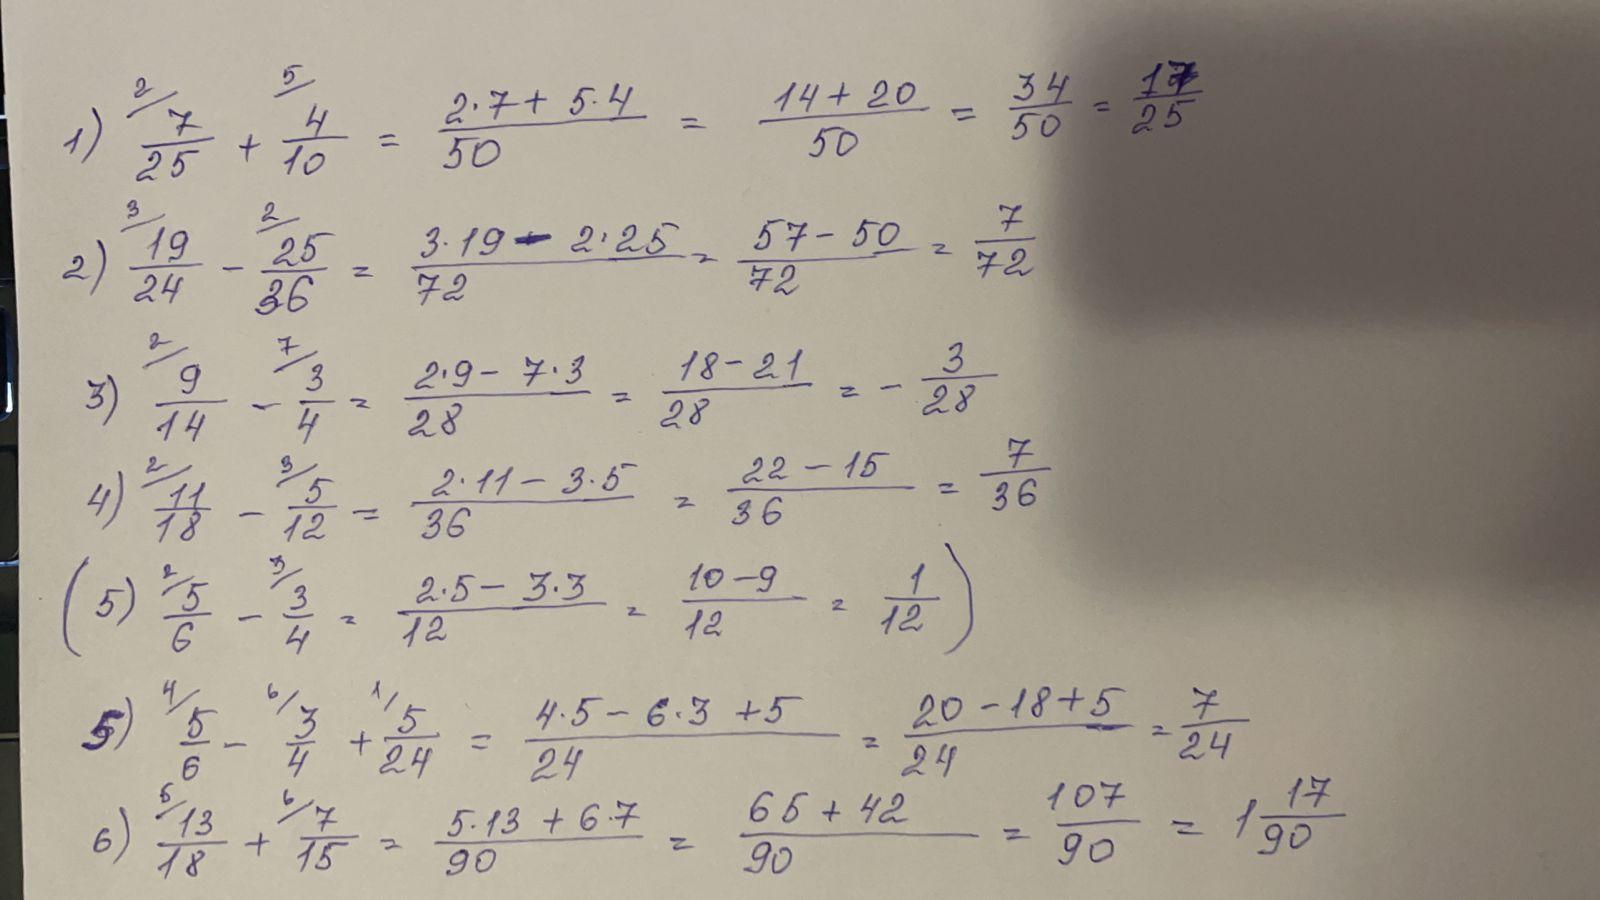 1) 2/ 7/25 + 5/ 4/10 = (2·7 + 5·4)/50 = (14 + 20)/50 = 34/50 = 17/25
2) 3/ 19/24 - 2/ 25/36 = (3·19 - 2·25)/72 = (57 - 50)/72 = 7/72
3) 2/ 9/14 - 7/ 3/4 = (2·9 - 7·3)/28 = (18 - 21)/28 = - 3/28
4) 2/ 11/18 - 3/ 5/12 = (2·11 - 3·5)/36 = (22 - 15)/36 = 7/36
(5) 2/ 5/6 - 3/ 3/4 = (2·5 - 3·3)/12 = (10 - 9)/12 = 1/12)
5) 4/ 5/6 - 6/ 3/4 + 1/ 5/24 = (4·5 - 6·3 + 5)/24 = (20 - 18 + 5)/24 = 7/24
6) 5/ 13/18 + 6/ 7/15 = (5·13 + 6·7)/90 = (65 + 42)/90 = 107/90 = 1 17/90